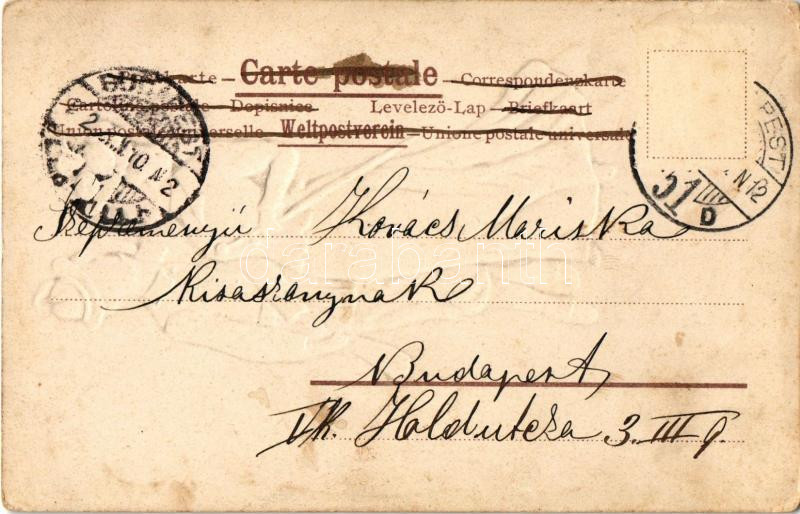 Postkarte – Carte postale – Correspondenzkarte
Cartolina postale – Dopisnice Levelező-Lap – Briefkaart
Union postale universelle Weltpostverein – Unione postale universale
PEST
N12
51
D
Kovács Mariska
Kisaszonynak
Budapest,
Holdutcza 3. III 9.
darabanth